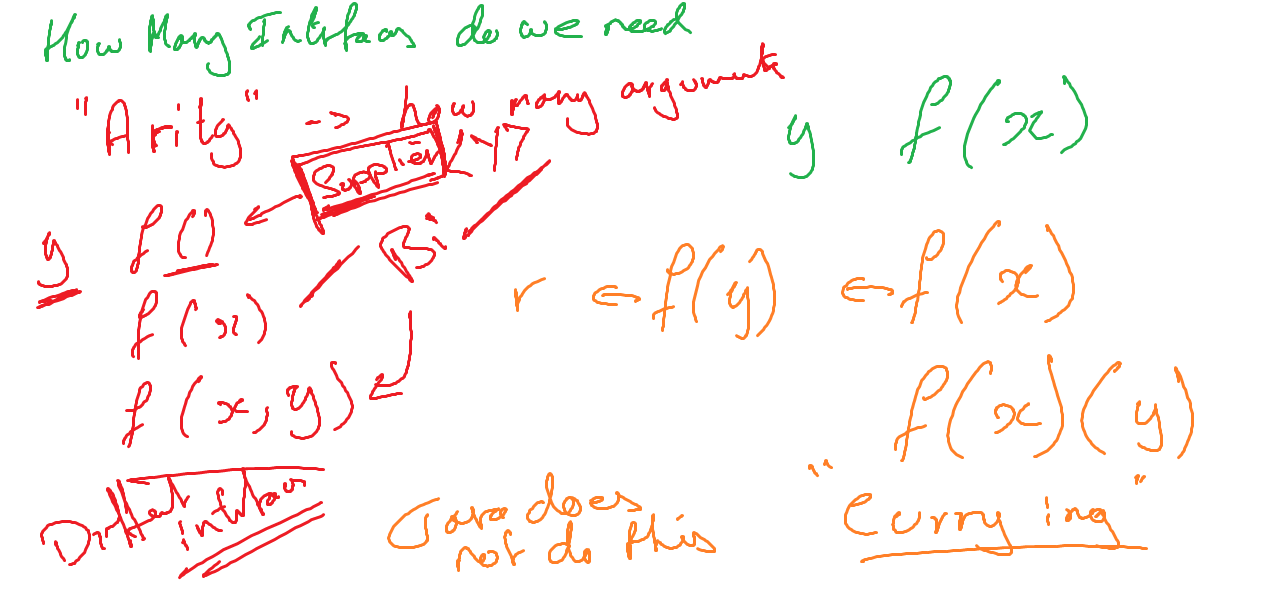 How Many Interfaces do we need
"Arity" -> how many arguments
y f(x)
Supplier <Y>
y f()
Bi
f(x)
r ← f(y) ← f(x)
f(x,y)
f(x)(y)
Different interfaces
Java does
not do this
"Currying"